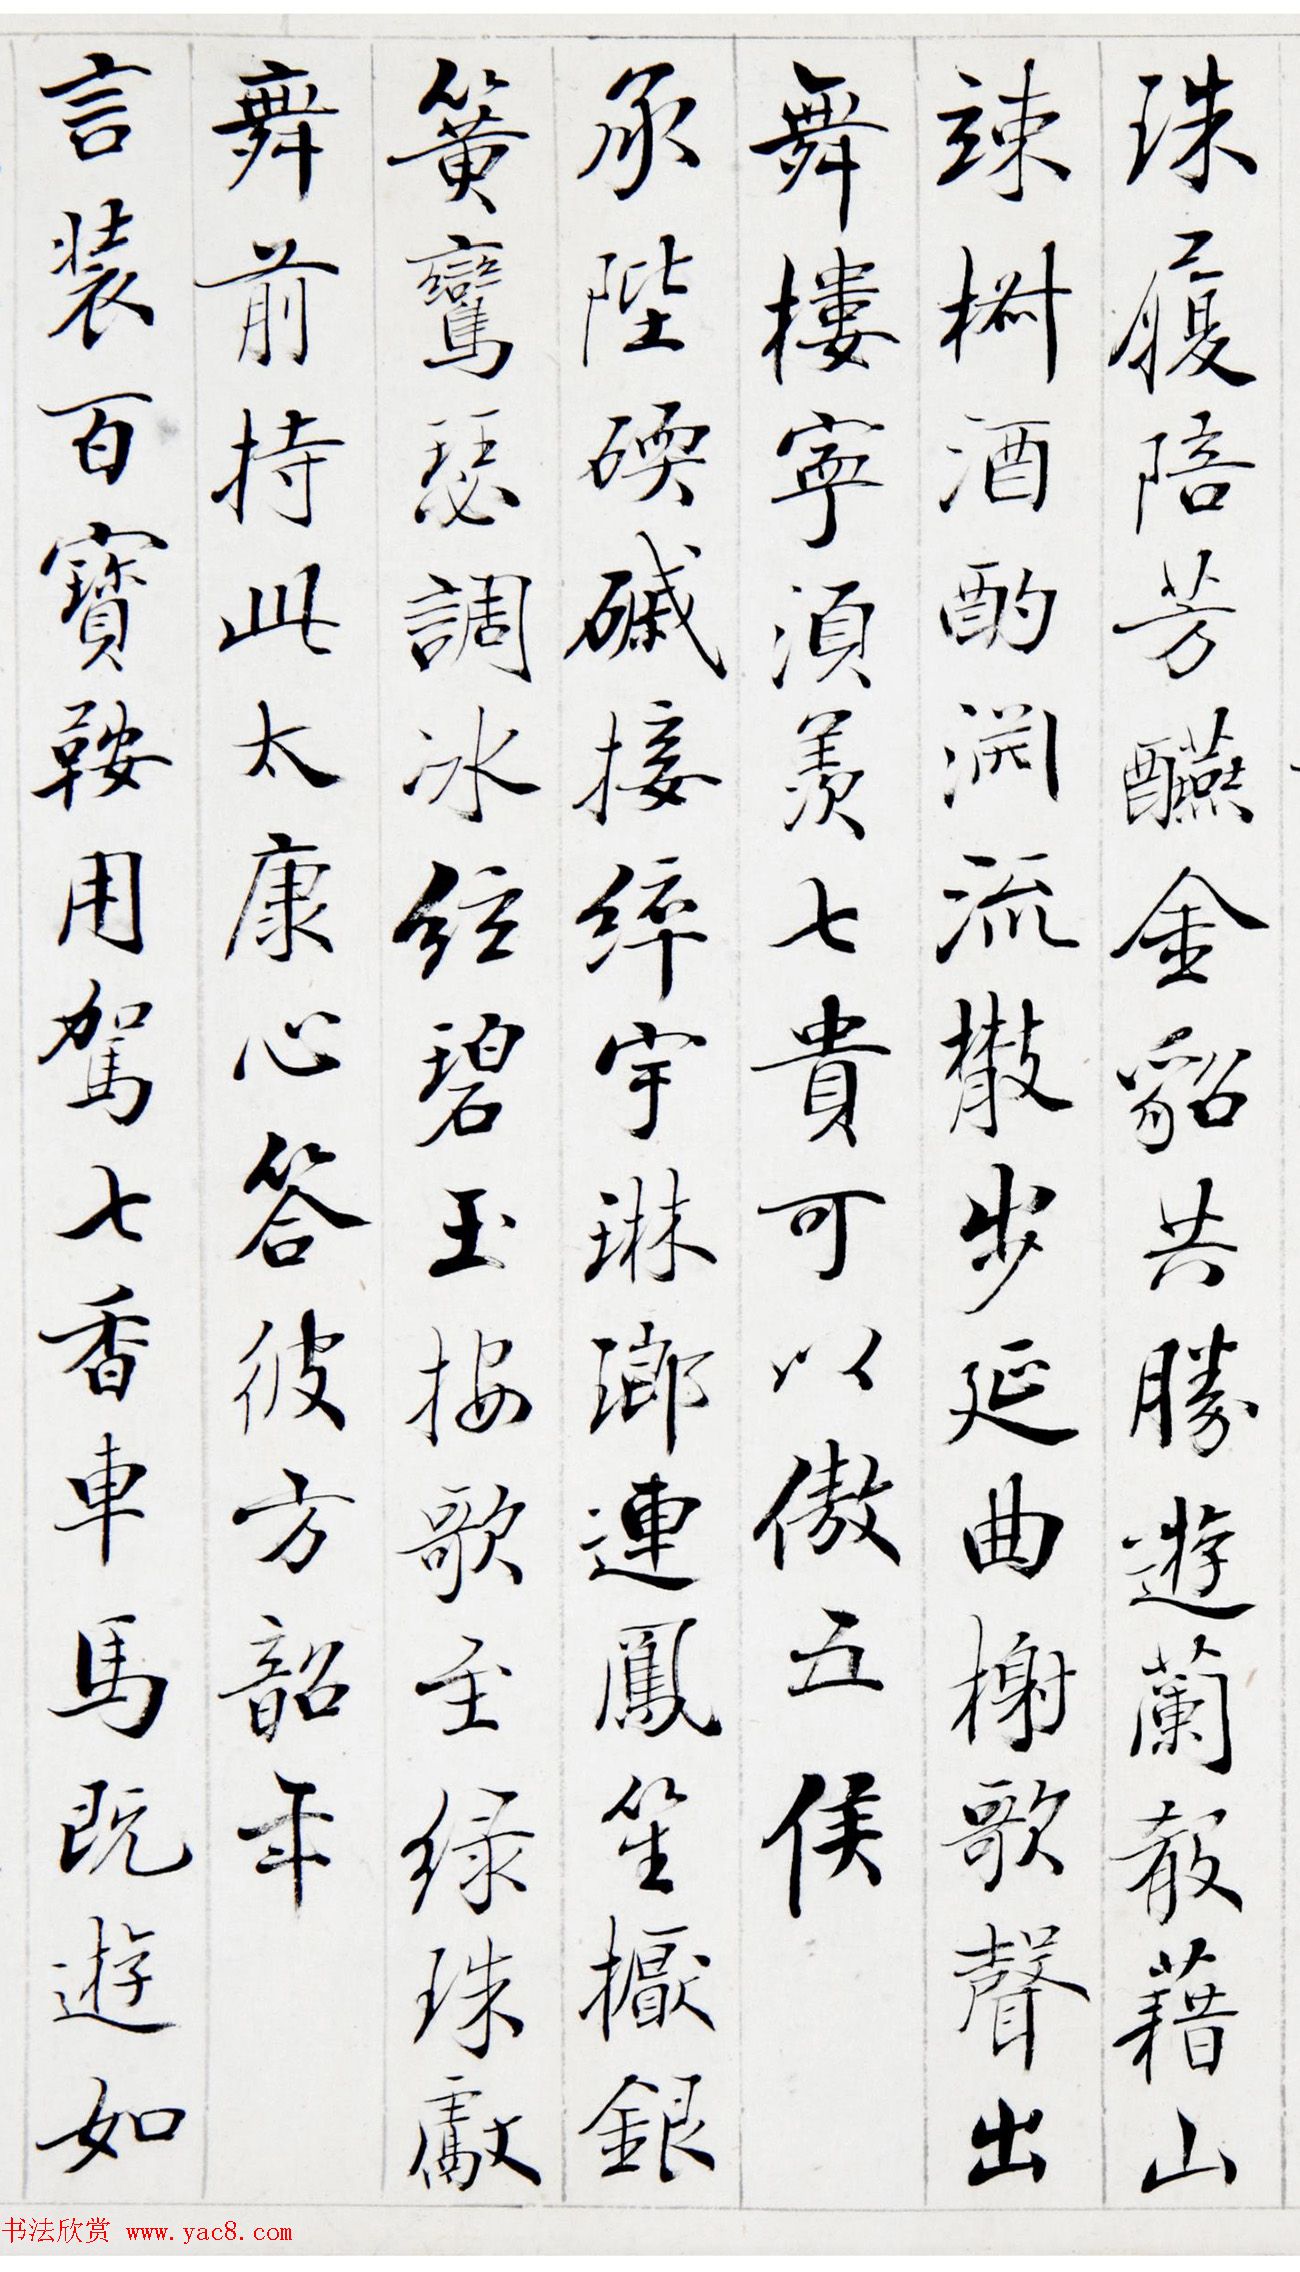 珠履陪芳醼金貂共勝遊蘭殽藉山
竦樹酒酌淵流撒步延曲榭歌聲出
舞樓寧須羨七貴可以傲五侯
承陛碝磩接綷宇琳瑯連鳳笙擫銀
簧鸞瑟調冰絃碧玉按歌至綠珠獻
舞前持此太康心答彼方韶年
言裝百寶鞍用駕七香車馬既遊如
书法欣赏 www.yac8.com